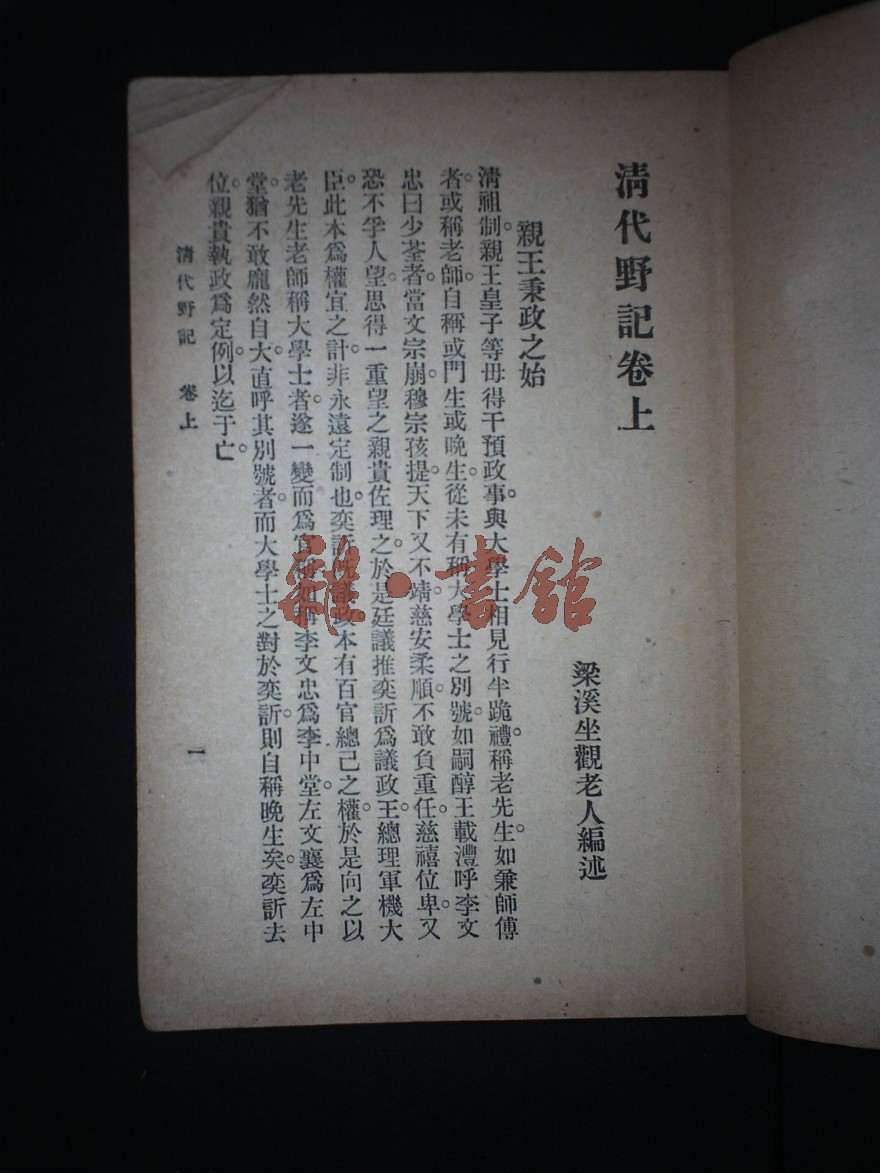 清代野記卷上
梁溪坐觀老人編述
親王秉政之始
清祖制。親王皇子等毋得干預政事。與大學士相見行半跪禮。稱老先生。如兼師傅
者。或稱老師。自稱或門生或晚生。從未有稱大學士之別號。如嗣醇王載灃呼李文
忠曰少荃者。當文宗崩。穆宗孩提。天下又不靖。慈安柔順。不敢負重任。慈禧位卑。又
恐不孚人望。思得一重望之親貴佐理之。於是廷議推奕訢爲議政王。總理軍機大
臣。此本爲權宜之計。非永遠定制也。奕訢既議政。本有百官總己之權。於是向之以
老先生老師稱大學士者。遂一變而爲官稱。如稱李文忠爲李中堂。左文襄爲左中
堂。猶不敢龐然自大。直呼其別號者。而大學士之對於奕訢。則自稱晚生矣。奕訢去
位。親貴執政爲定例。以迄于亡。
清代野記 卷上
一
雜·書館